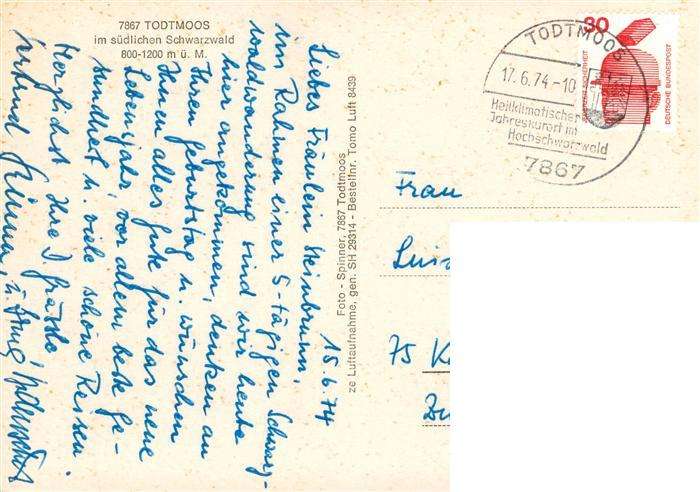 7867 TODTMOOS
im südlichen Schwarzwald
800-1200 m ü. M.
15.6.74
Liebes Fräulein Steinbrunn,
im Rahmen einer 5-tägigen Schwarz-
waldwanderung sind wir heute
hier angekommen, denken an
Ihren Geburtstag u. wünschen
Ihnen alles Gute für das neue
Lebensjahr, vor allem beste Ge-
sundheit u. viele schöne Reisen.
Herzlichst Ihre
Foto - Spinner, 7867 Todtmoos
ze Luftaufnahme, gen. SH 29314 - Bestellnr. Tomo Luft 8439
TODTMOOS
17.6.74-10
Heilklimatischer
Jahreskurort im
Hochschwarzwald
7867
30
DEUTSCHE BUNDESPOST
Frau
Luis
75 K